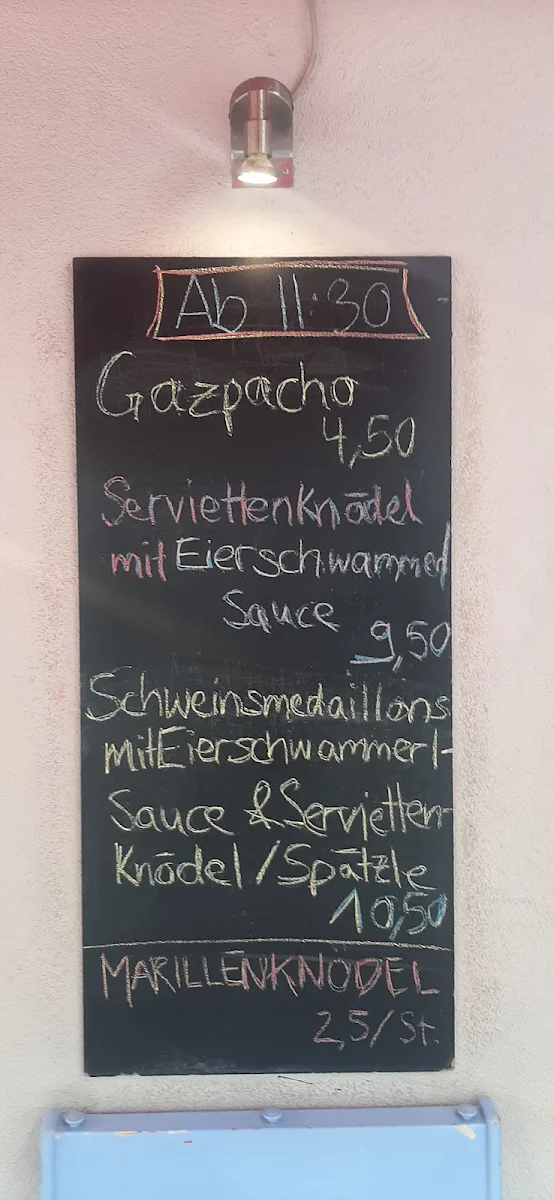 Ab 11:30
Gazpacho
4,50
Serviettenknödel
mit Eierschwammerl
Sauce
9,50
Schweinsmedaillons
mit Eierschwammerl-
Sauce & Servietten-
Knödel / Spätzle
10,50
MARILLENKNÖDEL
2,5/St.